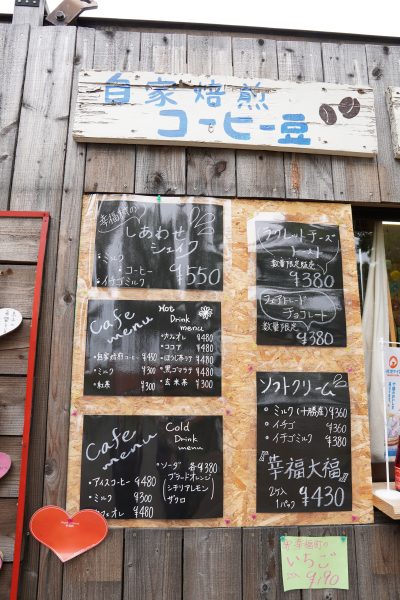 自家焙煎
コーヒー豆
幸福町の
しあわせ
シェイク
・ミルク
・コーヒー
・イチゴミルク
¥550
ラクレットチーズ
トースト
数量限定販売
¥380
フェアトレード
チョコレート
数量限定
¥380
Cafe
menu
Hot
Drink
menu
・自家焙煎コーヒー ¥450
・ミルク ¥300
・紅茶 ¥300
・カフェオレ ¥480
・ココア ¥480
・ほうじ茶ラテ ¥480
・黒ゴマラテ ¥480
・玄米茶 ¥300
Cafe
menu
Cold
Drink
menu
・アイスコーヒー ¥480
・ミルク ¥300
・カフェオレ ¥480
・ソーダ 各¥480
ブラッドオレンジ
シチリアレモン
ザクロ
ソフトクリーム
・ミルク(十勝産) ¥360
・イチゴ ¥360
・イチゴミルク ¥380
『幸福大福』
2ケ入
1パック
¥430
幸福町の
いちご
¥190